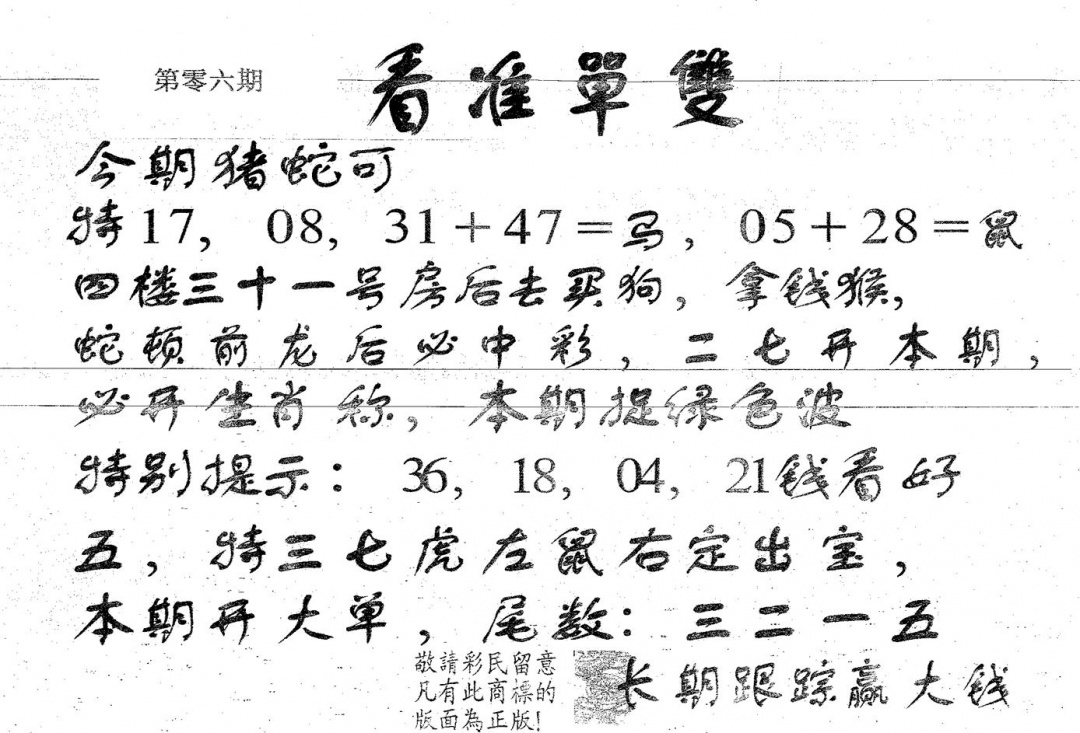 第零六期
看准單雙
今期猪蛇可
特17, 08, 31+47=马, 05+28=鼠
四楼三十一号房后去买狗, 拿钱猴,
蛇顿前龙后必中彩, 二七开本期,
必开生肖称, 本期捉绿色波
特别提示: 36, 18, 04, 21钱看好
五, 特三七虎左鼠右定出宝,
本期开大单, 尾数: 三二一五
敬請彩民留意
凡有此商標的
版面為正版!
长期跟踪赢大钱